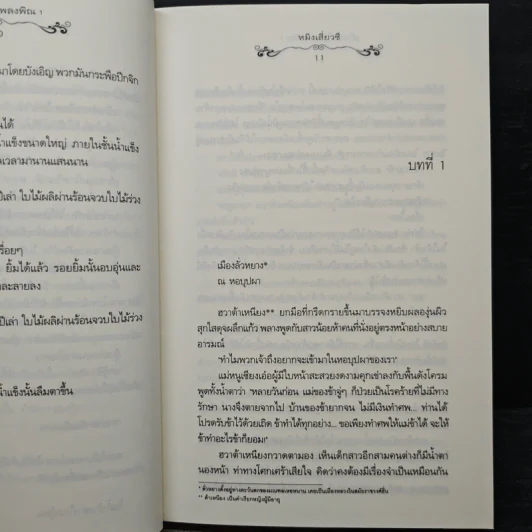 เพลงพิณ 1
มาโดยบังเอิญ พวกมันกระพือปีกจิก
นได้
น้ำแข็งขนาดใหญ่ ภายในชั้นน้ำแข็ง
ดเวลามานานแสนนาน
ปีเล่า ใบไม้ผลิผ่านร้อนจวบใบไม้ร่วง
รื่อยๆ
ยิ้มได้แล้ว รอยยิ้มนั้นอบอุ่นและ
ละลายลง
ปีเล่า ใบไม้ผลิผ่านร้อนจวบใบไม้ร่วง
น้ำแข็งนั้นลืมตาขึ้น
หมิงเสี่ยวซี
11
บทที่ 1
เมืองลั่วหยาง*
ณ หอบุปผา
ฮวาต้าเหนียง** ยกมือที่กรีดกรายขึ้นมาบรรจงหยิบผลองุ่นผิว
สุกใสดุจผลึกแก้ว พลางพูดกับสาวน้อยห้าคนที่นั่งอยู่ตรงหน้าอย่างสบาย
อารมณ์
'ทำไมพวกเจ้าถึงอยากจะเข้ามาในหอบุปผาของเรา'
แม่หนูเซียงเอ๋อผู้มีใบหน้าสะสวยงดงามคุกเข่าลงกับพื้นดังโครม
พูดทั้งน้ำตาว่า 'หลายวันก่อน แม่ของข้าจู่ๆ ก็ป่วยเป็นโรคร้ายที่ไม่มีทาง
รักษา นางจึงตายจากไป บ้านของข้ายากจน ไม่มีเงินทำศพ... ท่านได้
โปรดรับข้าไว้ด้วยเถิด ข้าทำได้ทุกอย่าง... ขอเพียงทำศพให้แม่ข้าได้ จะให้
ข้าทำอะไรข้าก็ยอม!'
ฮวาต้าเหนียงกวาดตามอง เห็นเด็กสาวอีกสามคนต่างก็มีน้ำตา
นองหน้า ท่าทางโศกเศร้าเสียใจ คิดว่าคงต้องมีเรื่องจำเป็นเหมือนกัน
* ตัวหยางตั้งอยู่ทางตะวันตกของมณฑลเหอหนาน เคยเป็นเมืองหลวงในสมัยราชวงศ์ฮั่น
** ต้าเหนียง เป็นคำเรียกหญิงผู้มีอายุ